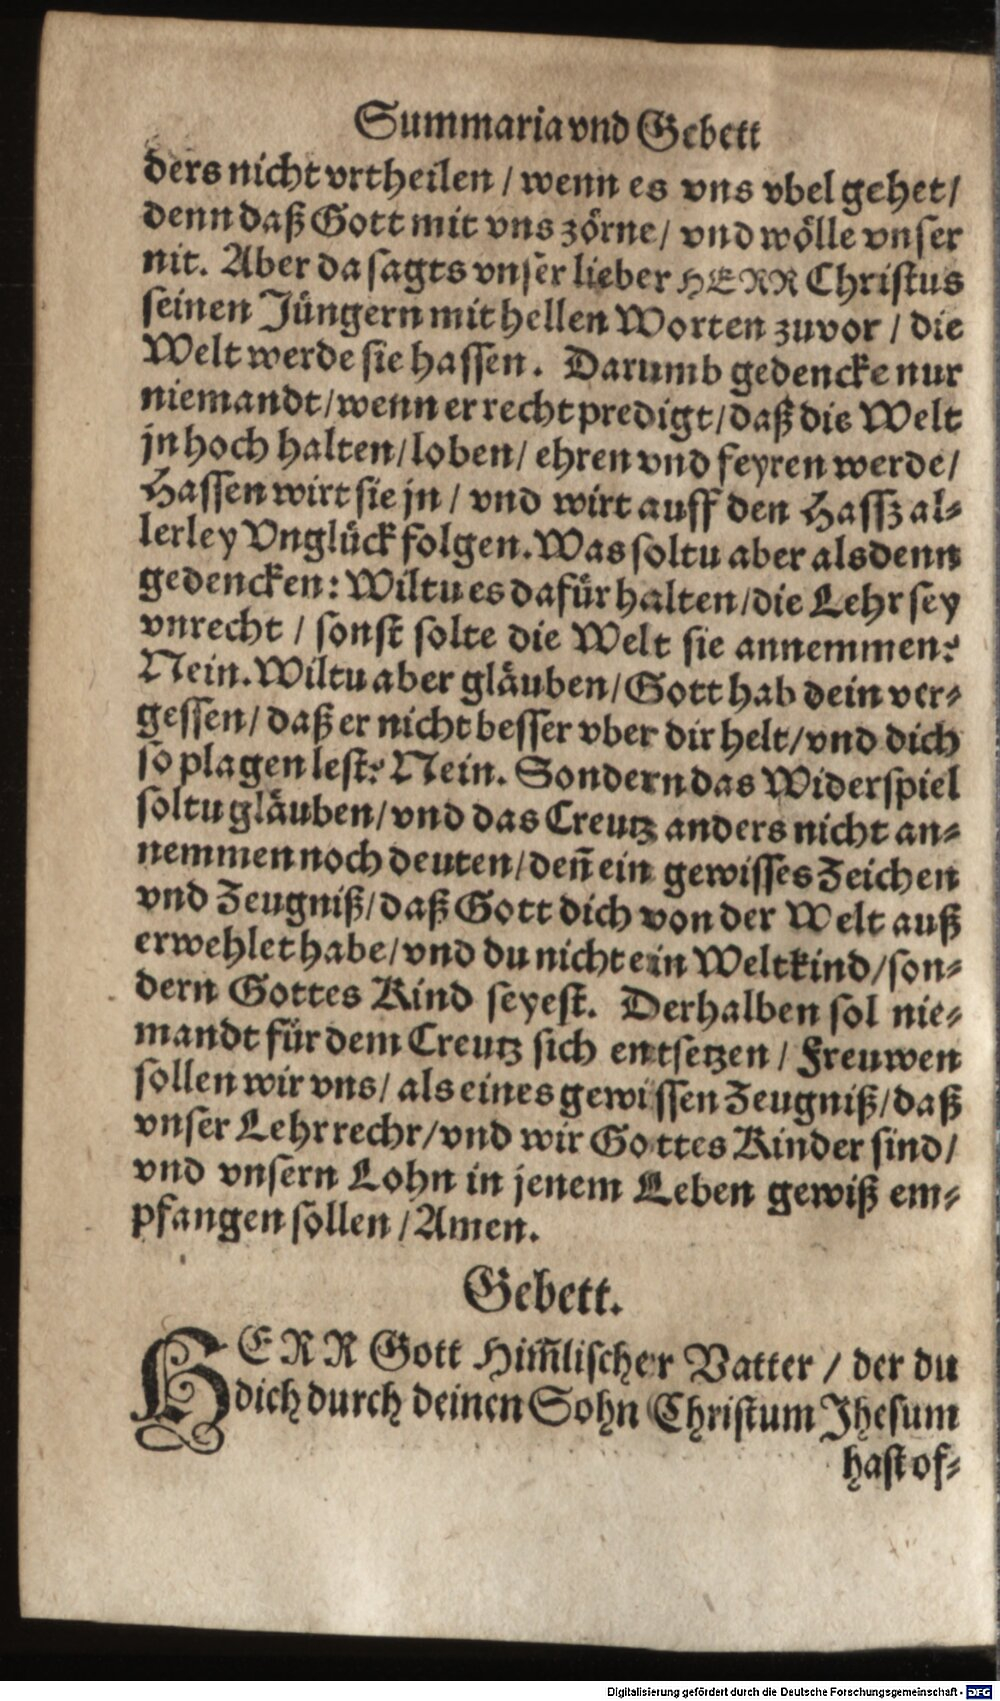 Summaria vnd Gebett
ders nicht vrtheilen / wenn es vns vbel gehet /
denn daß Gott mit vns zörne / vnd wölle vnser
nit. Aber da sagts vnser lieber HERR Christus
seinen Jüngern mit hellen Worten zuvor / die
Welt werde sie hassen. Darumb gedencke nur
niemandt / wenn er recht predigt / daß die Welt
jn hoch halten / loben / ehren vnd feyren werde /
Hassen wirt sie jn / vnd wirt auff den Hassz al-
lerley Vnglück folgen. Was soltu aber alsdenn
gedencken: Wiltu es dafür halten / die Lehr sey
vnrecht / sonst solte die Welt sie annemmen?
Nein. Wiltu aber gläuben / Gott hab dein ver-
gessen / daß er nicht besser vber dir helt / vnd dich
so plagen lest? Nein. Sondern das Widerspiel
soltu gläuben / vnd das Creutz anders nicht an-
nemmen noch deuten / deñ ein gewisses Zeichen
vnd Zeugniß / daß Gott dich von der Welt auß
erwehlet habe / vnd du nicht ein Weltkind / son-
dern Gottes Kind seyest. Derhalben sol nie-
mandt für dem Creutz sich entsetzen / Freuwen
sollen wir vns / als eines gewissen Zeugniß / daß
vnser Lehr rechr / vnd wir Gottes Kinder sind /
vnd vnsern Lohn in jenem Leben gewiß em-
pfangen sollen / Amen.
Gebett.
HERR Gott Him̃lischer Vatter / der du
dich durch deinen Sohn Christum Jhesum
hast of-
Digitalisierung gefördert durch die Deutsche Forschungsgemeinschaft - DFG